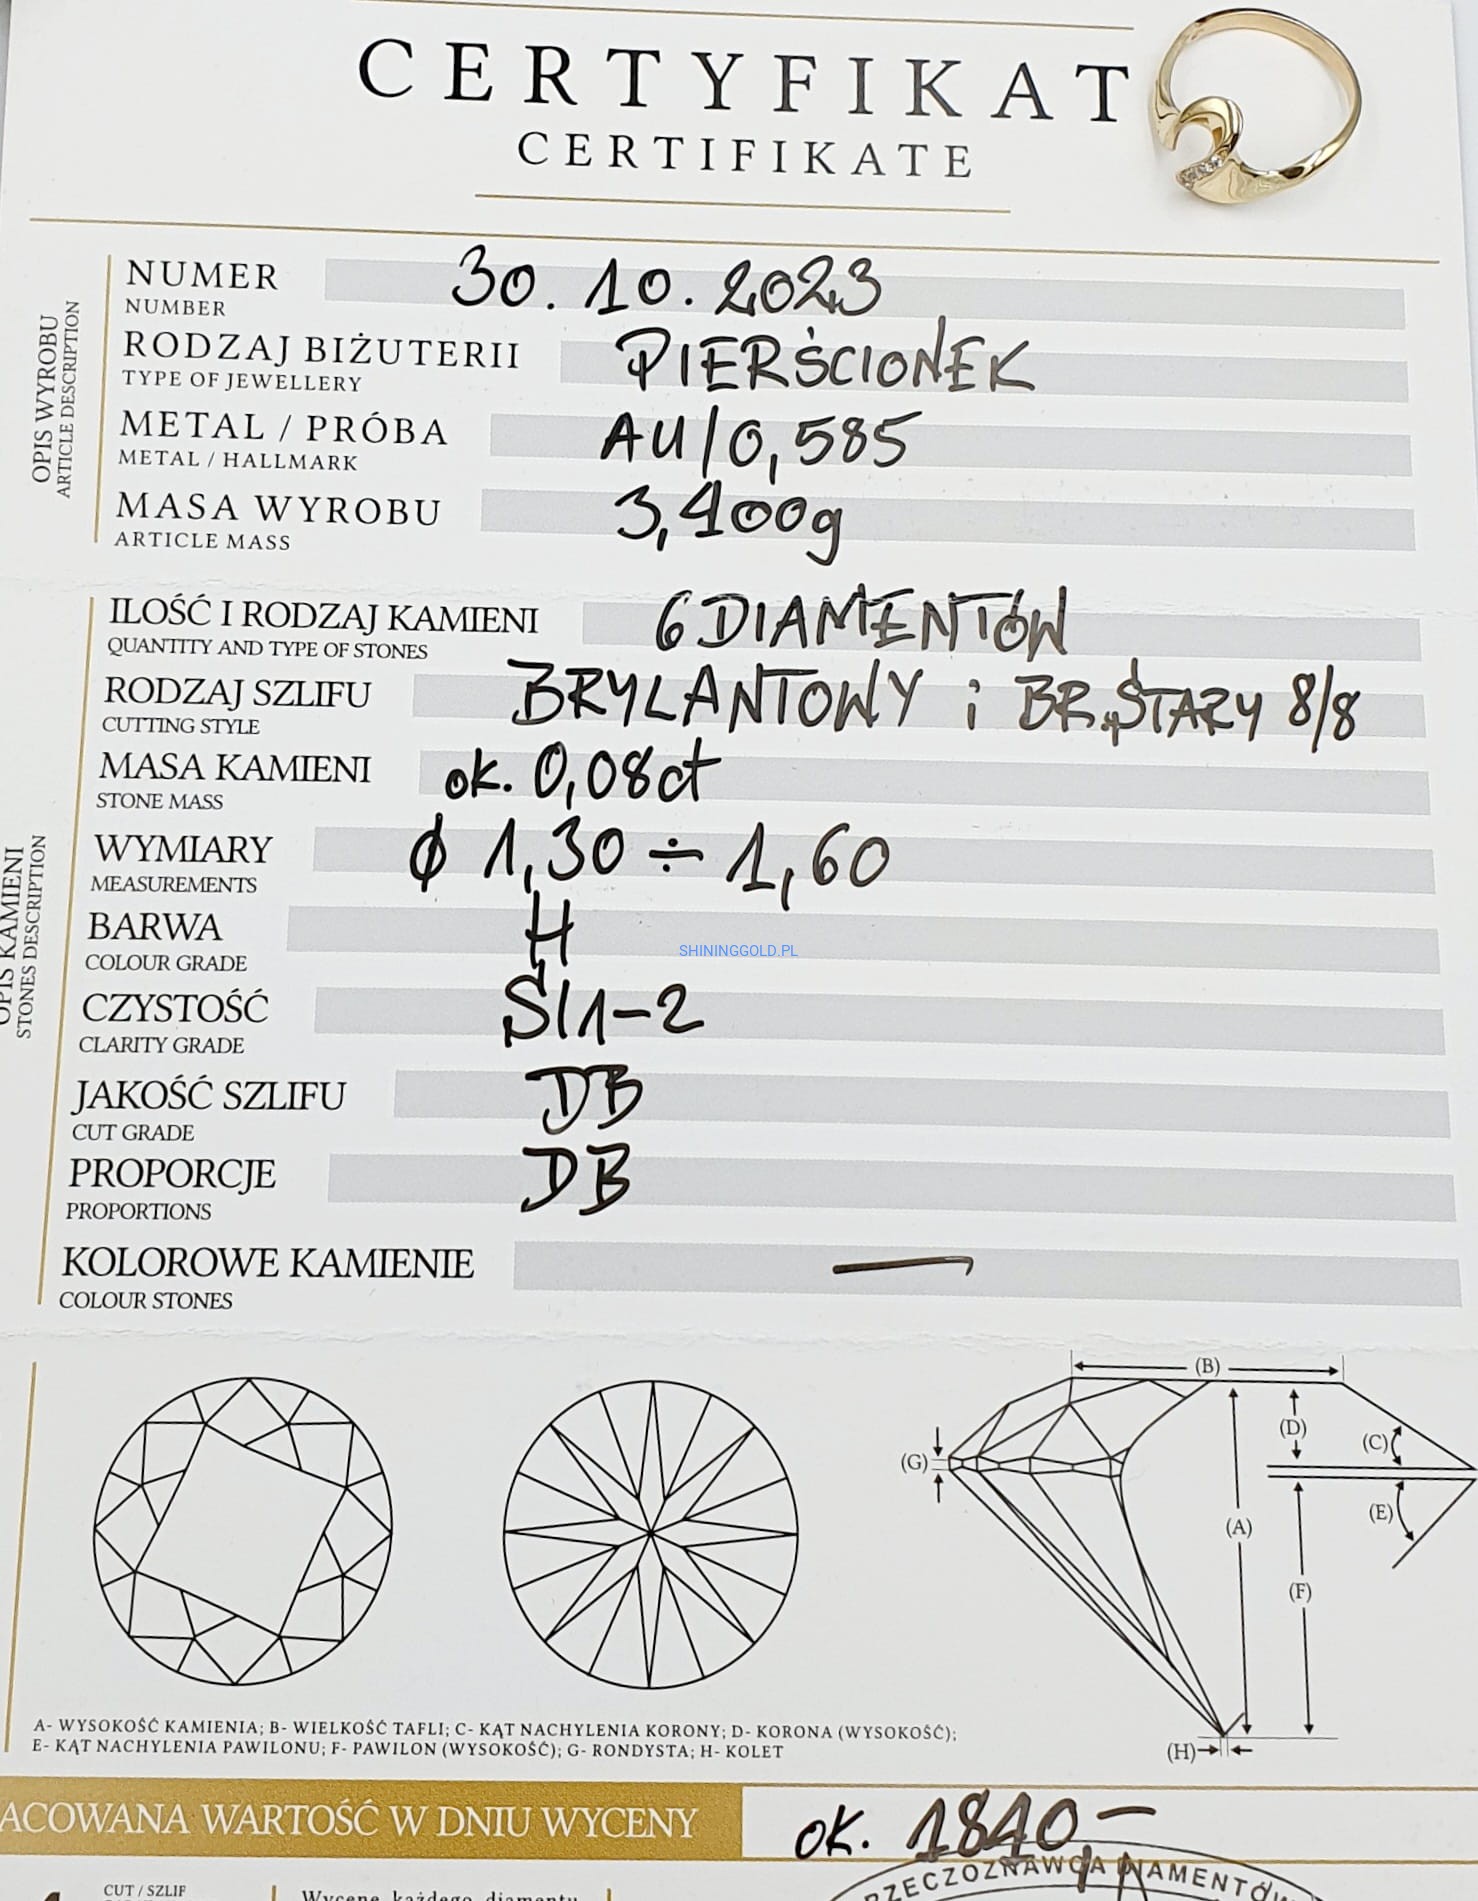 CERTYFIKAT
CERTIFIKATE
OPIS WYROBU
ARTICLE DESCRIPTION
NUMER 30.10.2023
NUMBER
RODZAJ BIŻUTERII PIERŚCIONEK
TYPE OF JEWELLERY
METAL / PRÓBA AU/0,585
METAL / HALLMARK
MASA WYROBU 3,400g
ARTICLE MASS
OPIS KAMIENI
STONES DESCRIPTION
ILOŚĆ I RODZAJ KAMIENI 6 DIAMENTÓW
QUANTITY AND TYPE OF STONES
RODZAJ SZLIFU BRYLANTOWY i BR. STARY 8/8
CUTTING STYLE
MASA KAMIENI ok. 0,08ct
STONE MASS
WYMIARY ϕ 1,30 ÷ 1,60
MEASUREMENTS
BARWA H
COLOUR GRADE
SHININGGOLD.PL
CZYSTOŚĆ SI1-2
CLARITY GRADE
JAKOŚĆ SZLIFU DB
CUT GRADE
PROPORCJE DB
PROPORTIONS
KOLOROWE KAMIENIE —
COLOUR STONES
(B)
(D)
(C)
(G)
(E)
(A)
(F)
(H)
A- WYSOKOŚĆ KAMIENIA; B- WIELKOŚĆ TAFLI; C- KĄT NACHYLENIA KORONY; D- KORONA (WYSOKOŚĆ);
E- KĄT NACHYLENIA PAWILONU; F- PAWILON (WYSOKOŚĆ); G- RONDYSTA; H- KOLET
ACOWANA WARTOŚĆ W DNIU WYCENY ok. 1840,-
RZECZOZNAWCA DIAMENTÓW
CUT / SZLIF
Wycenę każdego diamentu